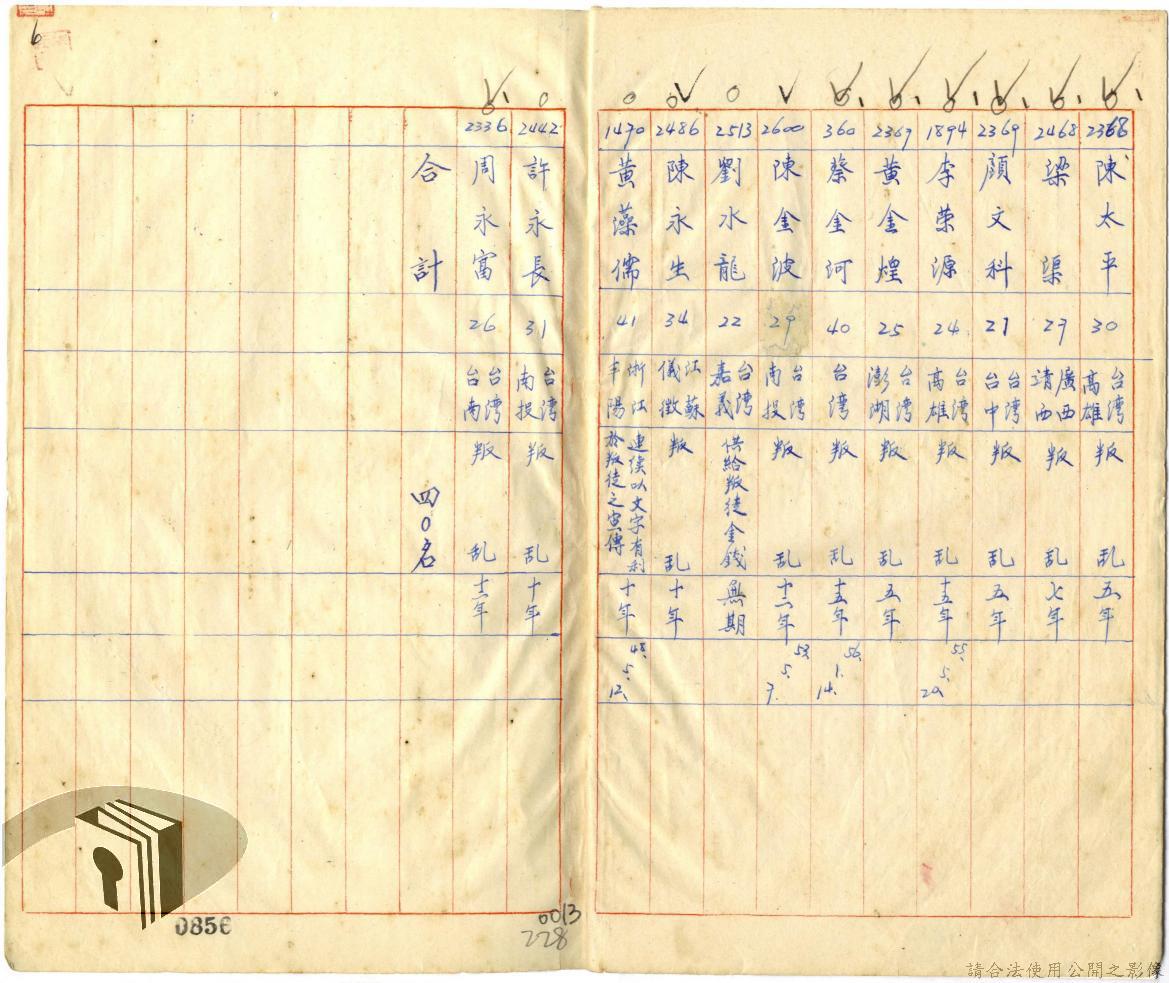 6
2368
陳太平
30
台湾
高雄
叛乱
五年
2468
梁渠
27
廣西
靖西
叛乱
七年
2369
顏文科
21
台湾
台中
叛乱
五年
1894
李荣源
24
台湾
高雄
叛乱
十五年
55.
5.
29.
2367
黃金煌
25
台湾
澎湖
叛乱
五年
360
蔡金河
40
台湾
叛乱
十五年
56.
1.
14.
2600
陳金波
29
台湾
南投
叛乱
十二年
53.
5.
7.
2513
劉水龍
22
台湾
嘉義
供給叛徒金錢
無期
2486
陳永生
34
江蘇
儀徵
叛乱
十年
1470
黃藻儒
41
浙江
連續以文字有利
於叛徒之宣傳
十年
48.
5.
12.
2442
許永長
31
台湾
南投
叛乱
十年
2336
周永富
26
台湾
台南
叛乱
十二年
合計
四0名
0856
0013
228
請合法使用公開之影像